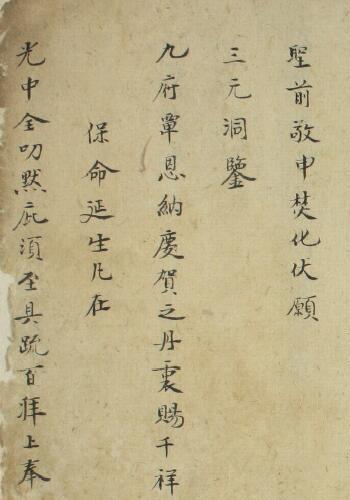 聖前敬申焚化伏願
三元洞鑒
九府覃恩納慶賀之丹衷賜千祥
保命延生凡在
光中全叨默庇須至具疏百拜上奉